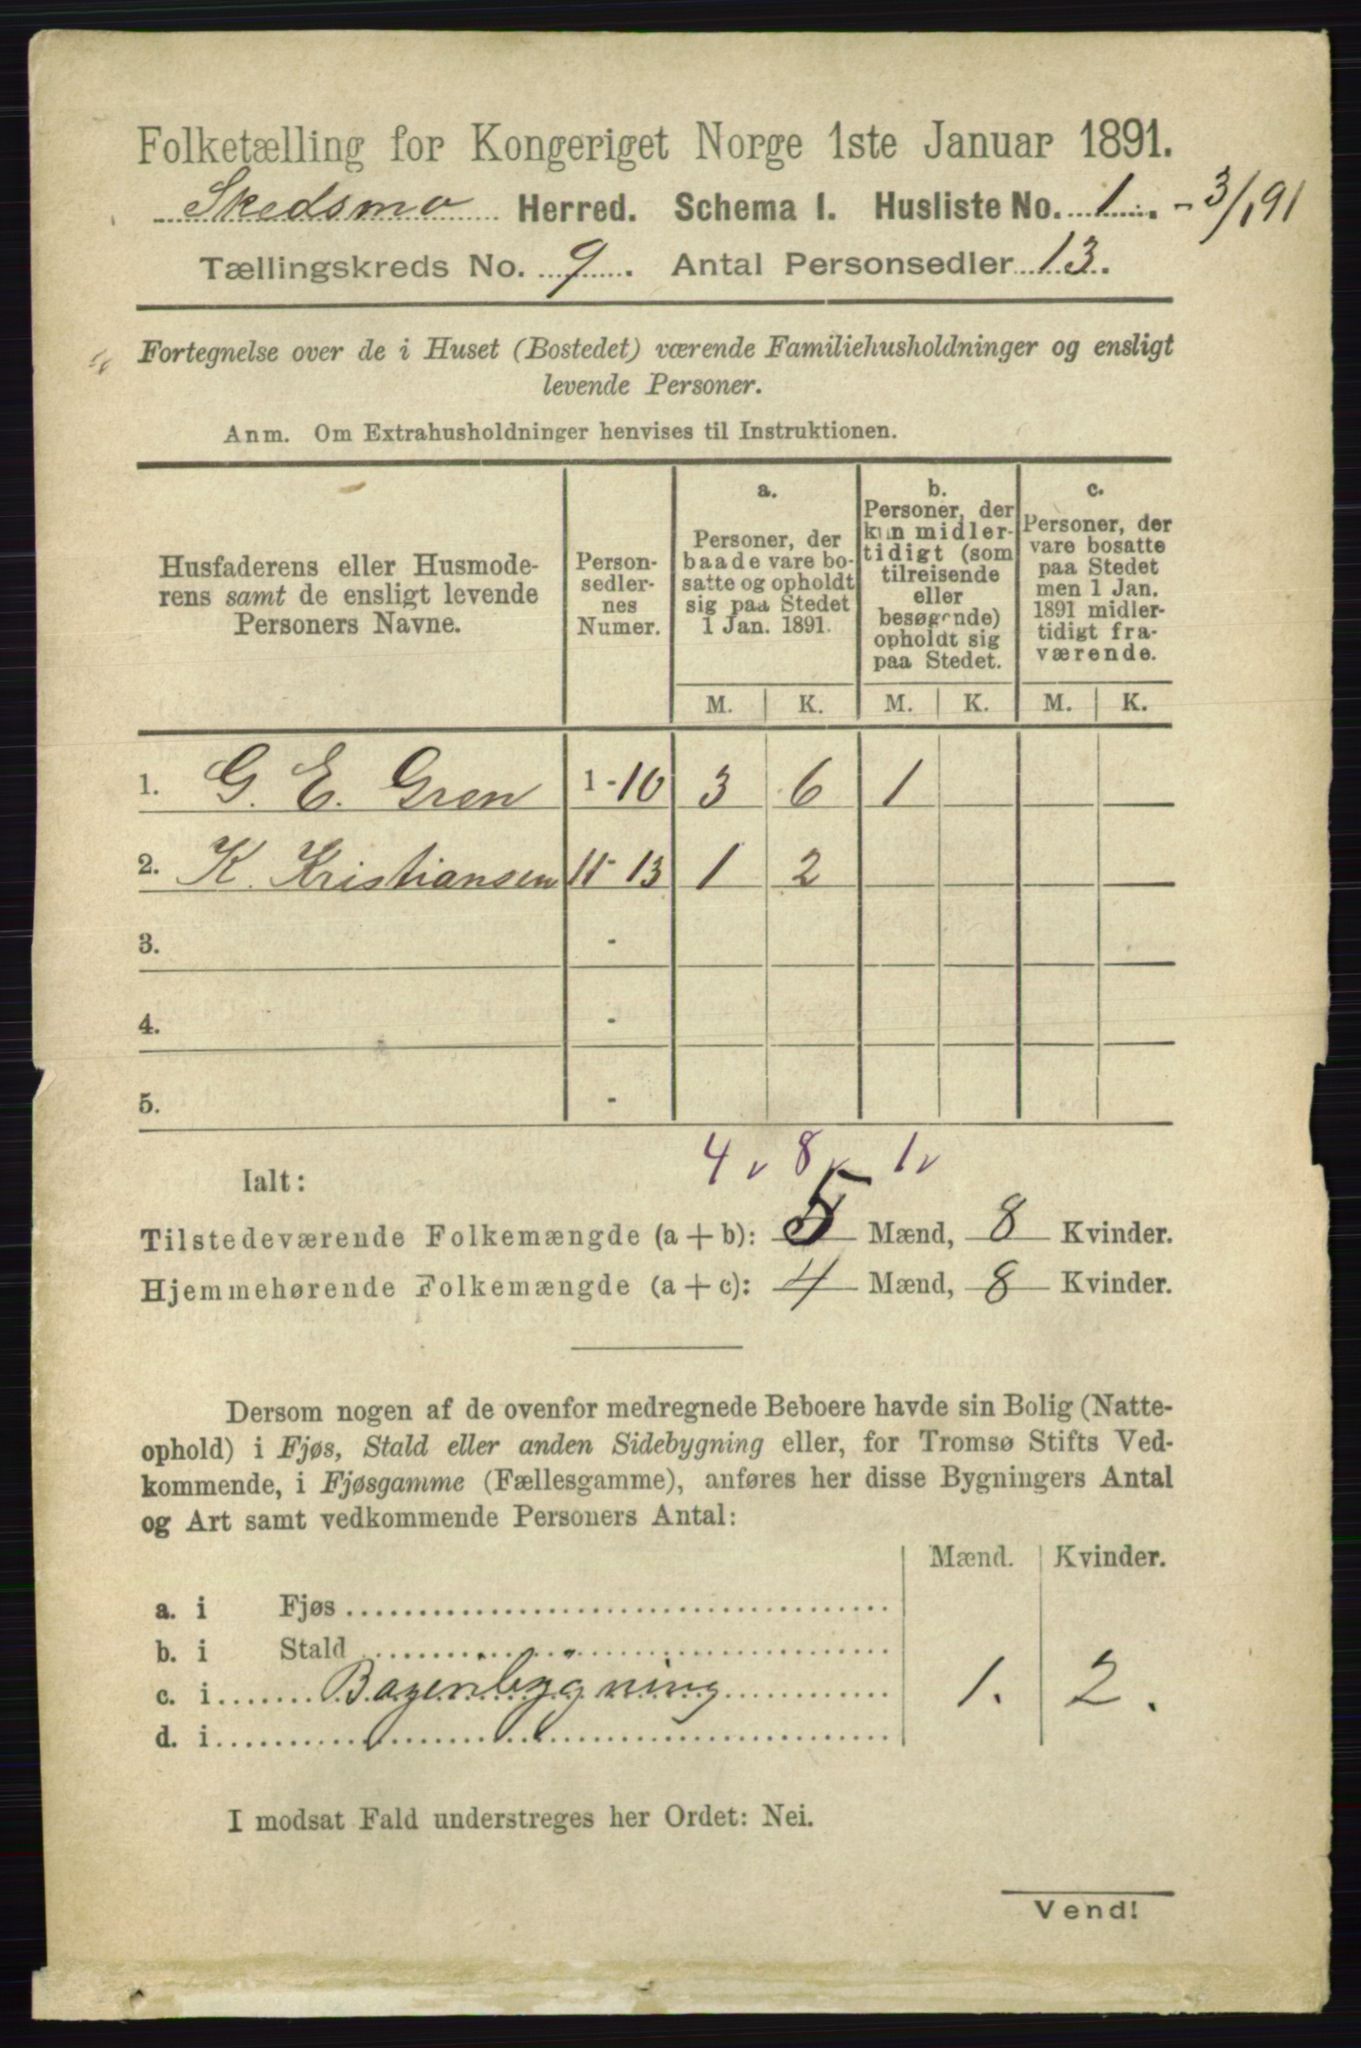 Folketælling for Kongeriget Norge 1ste Januar 1891.
Skedsmo Herred. Schema I. Husliste No. 1. - 3/1 91
Tællingskreds No. 9. Antal Personsedler 13.
Fortegnelse over de i Huset (Bostedet) værende Familiehusholdninger og ensligt
levende Personer.
Anm. Om Extrahusholdninger henvises til Instruktionen.
Husfaderens eller Husmode-
rens samt de ensligt levende
Personers Navne.
Person-
sedler-
nes
Numer.
a.
Personer, der
baade vare bo-
satte og opholdt
sig paa Stedet
1 Jan. 1891.
b.
Personer, der
kun midler-
tidigt (som
tilreisende
eller
besøgende)
opholdt sig
paa Stedet.
c.
Personer, der
vare bosatte
paa Stedet
men 1 Jan.
1891 midler-
tidigt fra-
værende.
M. K. M. K. M. K.
1. G. E. Gren 1-10 3 6 1
2. K. Kristiansen 11-13 1 2
3. -
4. -
5. -
4 v 8 v 1 v
Ialt:
Tilstedeværende Folkemængde (a + b): 5 Mænd, 8 Kvinder.
Hjemmehørende Folkemængde (a + c): 4 Mænd, 8 Kvinder.
Dersom nogen af de ovenfor medregnede Beboere havde sin Bolig (Natte-
ophold) i Fjøs, Stald eller anden Sidebygning eller, for Tromsø Stifts Ved-
kommende, i Fjøsgamme (Fællesgamme), anføres her disse Bygningers Antal
og Art samt vedkommende Personers Antal:
Mænd. Kvinder.
a. i Fjøs
b. i Stald
c. i Bagenbygning 1. 2.
d. i
I modsat Fald understreges her Ordet: Nei.
Vend!